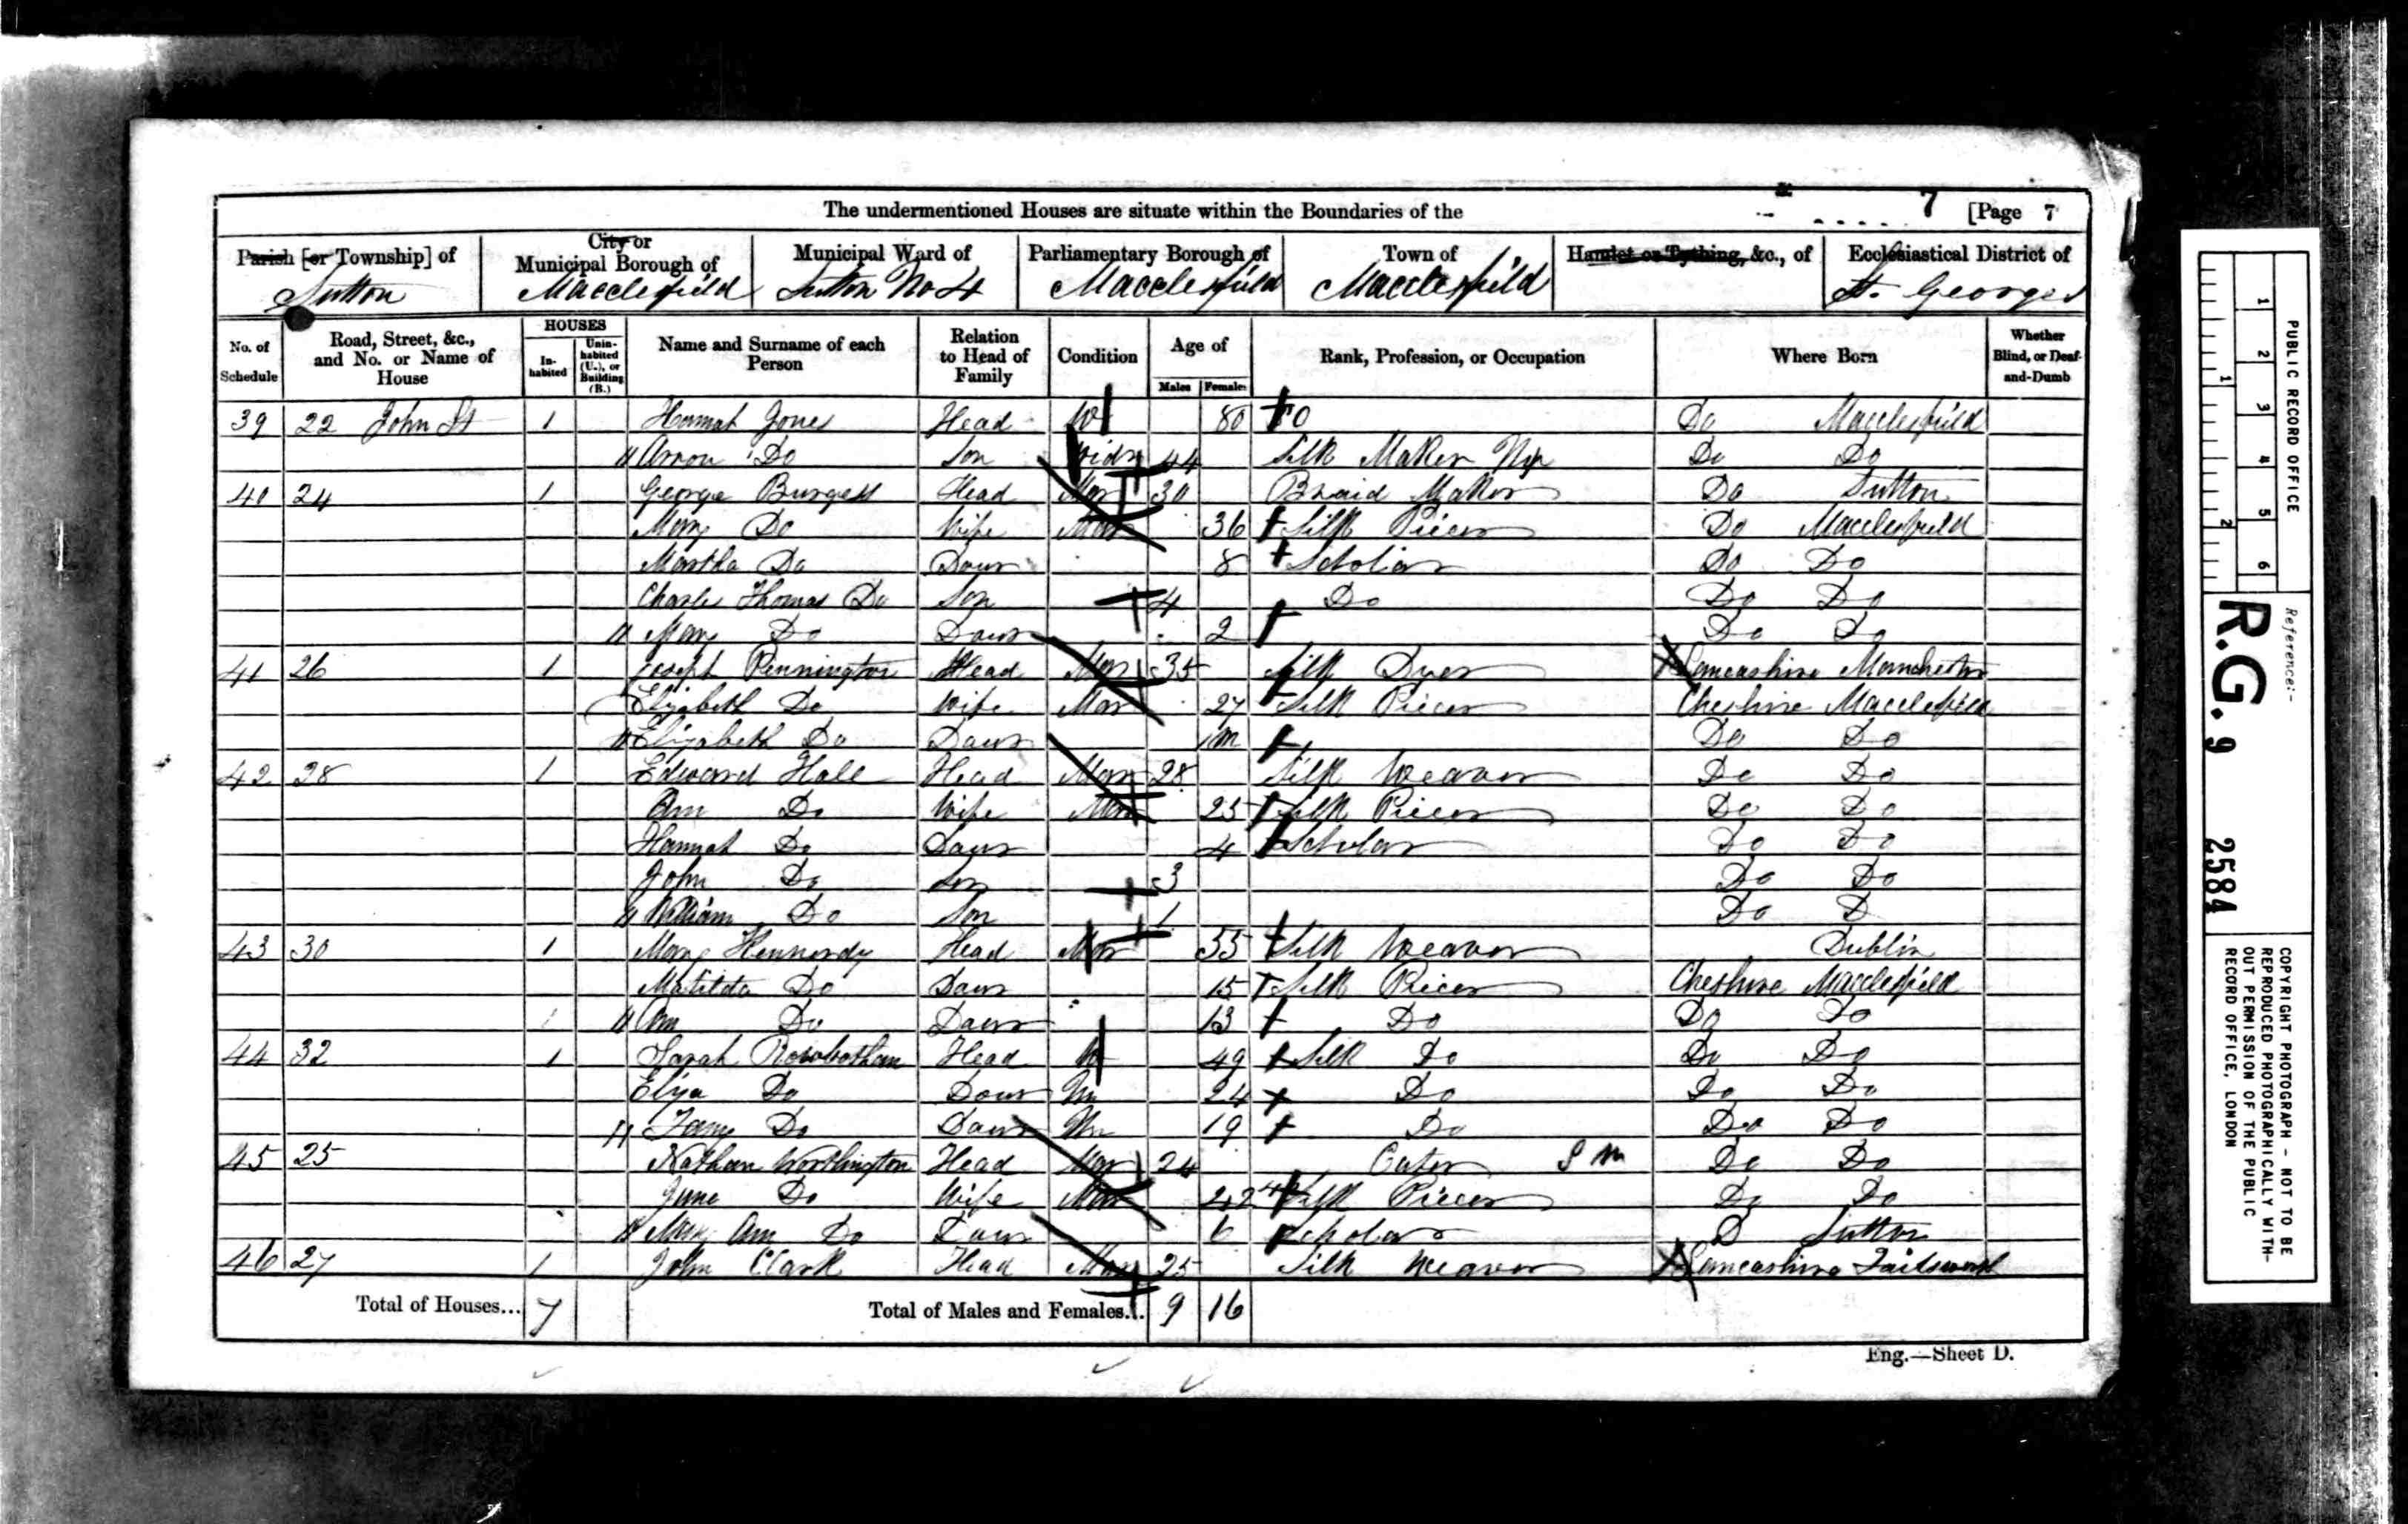 The undermentioned Houses are situate within the Boundaries of the 7 [Page 7
Parish [or Township] of Sutton
City or Municipal Borough of Macclesfield
Municipal Ward of Sutton No 4
Parliamentary Borough of Macclesfield
Town of Macclesfield
Hamlet or Tything, &c., of
Ecclesiastical District of St. Georges
No. of Schedule
Road, Street, &c., and No. or Name of House
HOUSES
In-habited
Unin-habited (U.), or Building (B.)
Name and Surname of each Person
Relation to Head of Family
Condition
Age of
Males Females
Rank, Profession, or Occupation
Where Born
Whether Blind, or Deaf-and-Dumb
39 22 John St 1 Hannah Head W 80 Do Macclesfield
Arron Do Son Widr 44 Silk Maker Do Do
40 24 1 George Burgess Head Mar 30 Braid Maker Do Sutton
Mary Do Wife Mar 36 Silk Piecer Do Macclesfield
Martha Do Daur 8 Scholar Do Do
Charles Thomas Do Son 4 Do Do Do
Mary Do Daur 2 Do Do
41 26 1 Joseph Pennington Head Mar 35 Silk Dyer Lancashire Manchester
Elizabeth Do Wife Mar 27 Silk Piecer Cheshire Macclesfield
Elizabeth Do Daur 1m Do Do
42 28 1 Edward Hall Head Mar 28 Silk Weaver Do Do
Ann Do Wife Mar 25 Silk Piecer Do Do
Hannah Do Daur 4 Scholar Do Do
John Do Son 3 Do Do
William Do Son 1 Do D
43 30 1 Mary Hennerdy Head Mar 55 Silk Weaver Dublin
Matilda Do Daur 15 Silk Piecer Cheshire Macclesfield
Ann Do Daur 13 Do Do Do
44 32 1 Sarah Rowbotham Head W 49 Silk Do Do Do
Eliza Do Daur Un 24 Do Do Do
Do Daur Un 19 Do Do Do
45 25 Nathan Worthington Head Mar 24 S M Do Do
Jane Do Wife Mar Silk Piecer Do Do
Mary Ann Do Daur 6 Scholar D Sutton
46 27 1 John Clark Head Mar 25 Silk Weaver Lancashire Failsworth
Total of Houses... 7 Total of Males and Females... 9 16
Eng.—Sheet D.
PUBLIC RECORD OFFICE
1 2 3 4 5 6
1 2
Reference:-
R.G. 9 2584
COPYRIGHT PHOTOGRAPH - NOT TO BE
REPRODUCED PHOTOGRAPHICALLY WITH-
OUT PERMISSION OF THE PUBLIC
RECORD OFFICE, LONDON